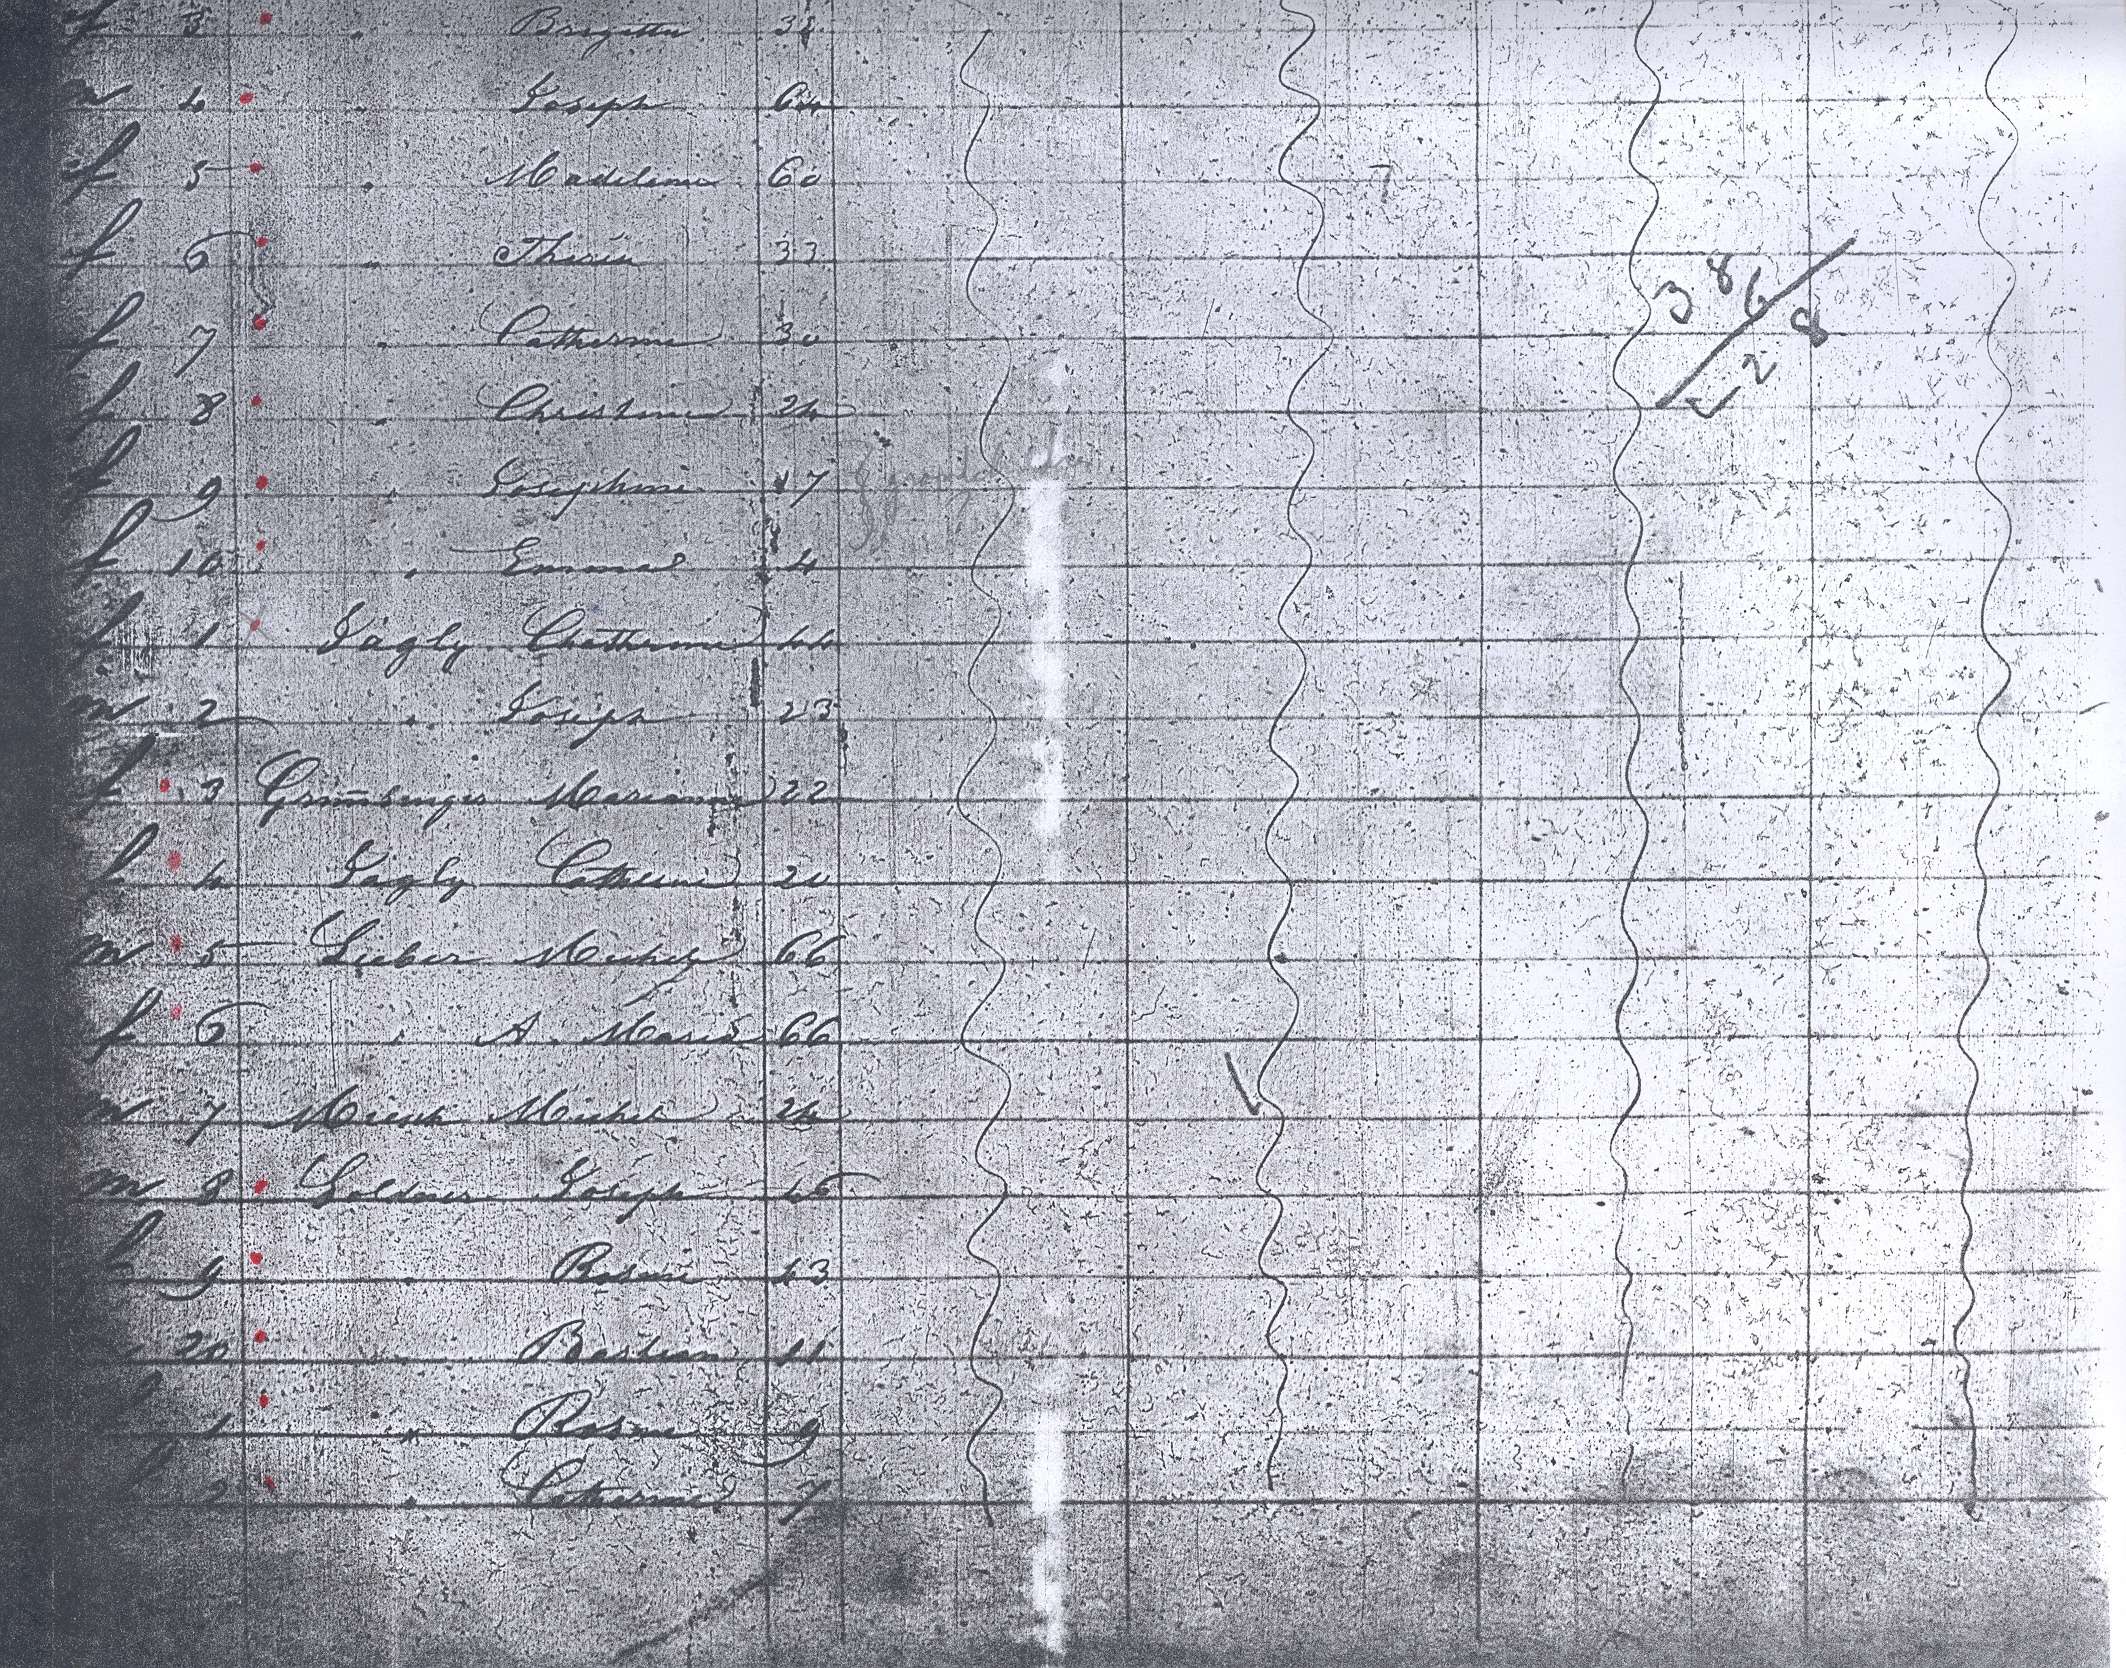 f 3 " Brigitta 32
m 4 " Joseph 64
f 5 " Madelaine 60
f 6 " Theresia 33
f 7 " Catherine 30
f 8 " Christina 24
f 9 " Josephine 17
f 10 " Emma 4
f 1 Jagly Chatherine 44
m 2 " Joseph 23
f 3 Marianne 22
f 4 Jagly Catherine 20
m 5 Lieber Michel 66
f 6 " A. Maria 66
m 7 Michel 24
m 8 Goldner Joseph 45
9 " Rosine 43
20 " Bastian 11
1 " Rosine 9
2 " Catherine 7
7
386
28